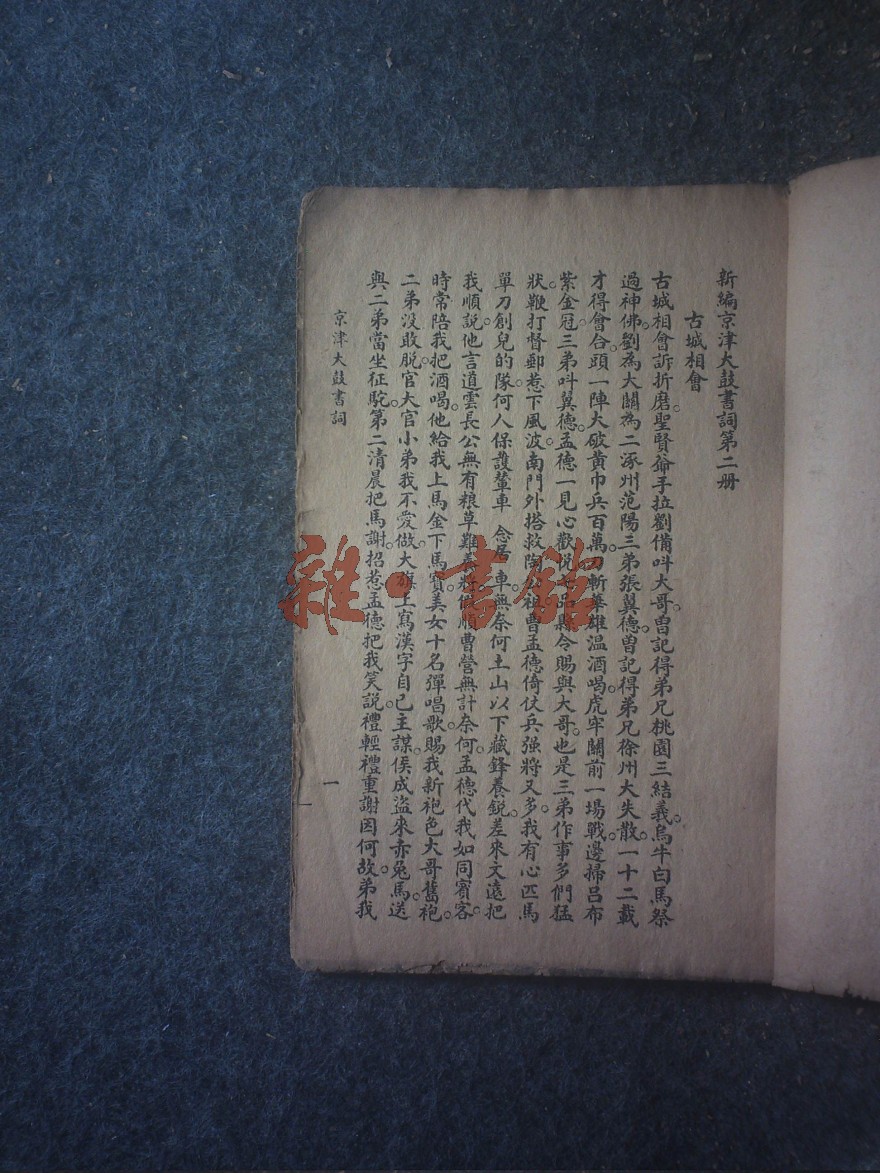 新編京津大鼓書詞第二册
古城相會
古城相會訴折磨。聖賢爺手拉劉備呌大哥。曾記得弟兄桃園三結義。烏牛白馬祭
過神佛。劉為大關為二涿州范陽三弟張翼德。曾記得弟兄徐州大失散。一十二載
才得會合頭一陣大破黃巾兵百萬。刀斬華雄温酒喝。虎牢關前一場戰。邊掃呂布
紫金冠。三弟呌翼德。孟德一見心歡悅。七品縣令賜與大哥。也是三弟作事多們猛
狀。鞭打督郵惹下風波。南門外搭救陶公祖。曹孟德倚仗兵强將又多。我有心匹馬
單刀創兒的隊何人保護輦車 念居 車。無奈何土山以下藏鋒養鋭。差來文遠把
我順說。他言道雲長公無有粮草難養將。佯順曹營無計奈何。孟德代我如同賓客。
時常陪我把酒喝。他給我上馬金下馬寶。美女十名彈唱歌。賜我新袍色大哥舊袍。
二弟没敢脱。官大官小弟我不愛做。大旗上寫漢字自己主謀。侯成盜來赤兔馬。送
與二弟當坐征駝。第二清晨把馬謝。招惹孟德把我笑。說禮輕禮重謝因何故。弟我
京津大鼓書詞
一
雜·書館